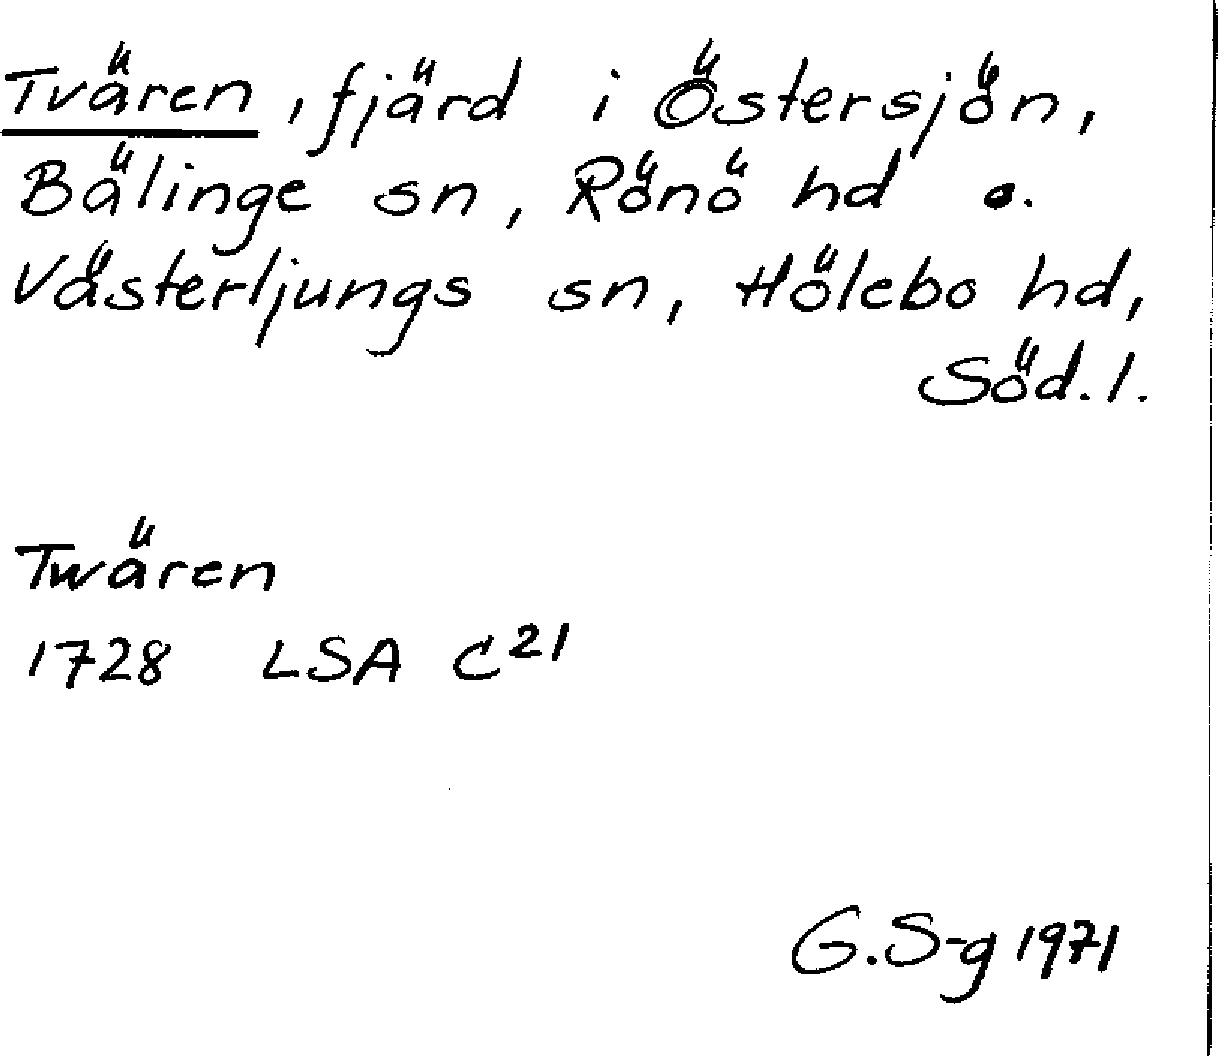 Tvären, fjärd i Östersjön,
Bälinge sn, Rönö hd o.
Västerljungs sn, Hölebo hd,
Söd. l.
Twären
1728 LSA C²¹
G. S-g 1971